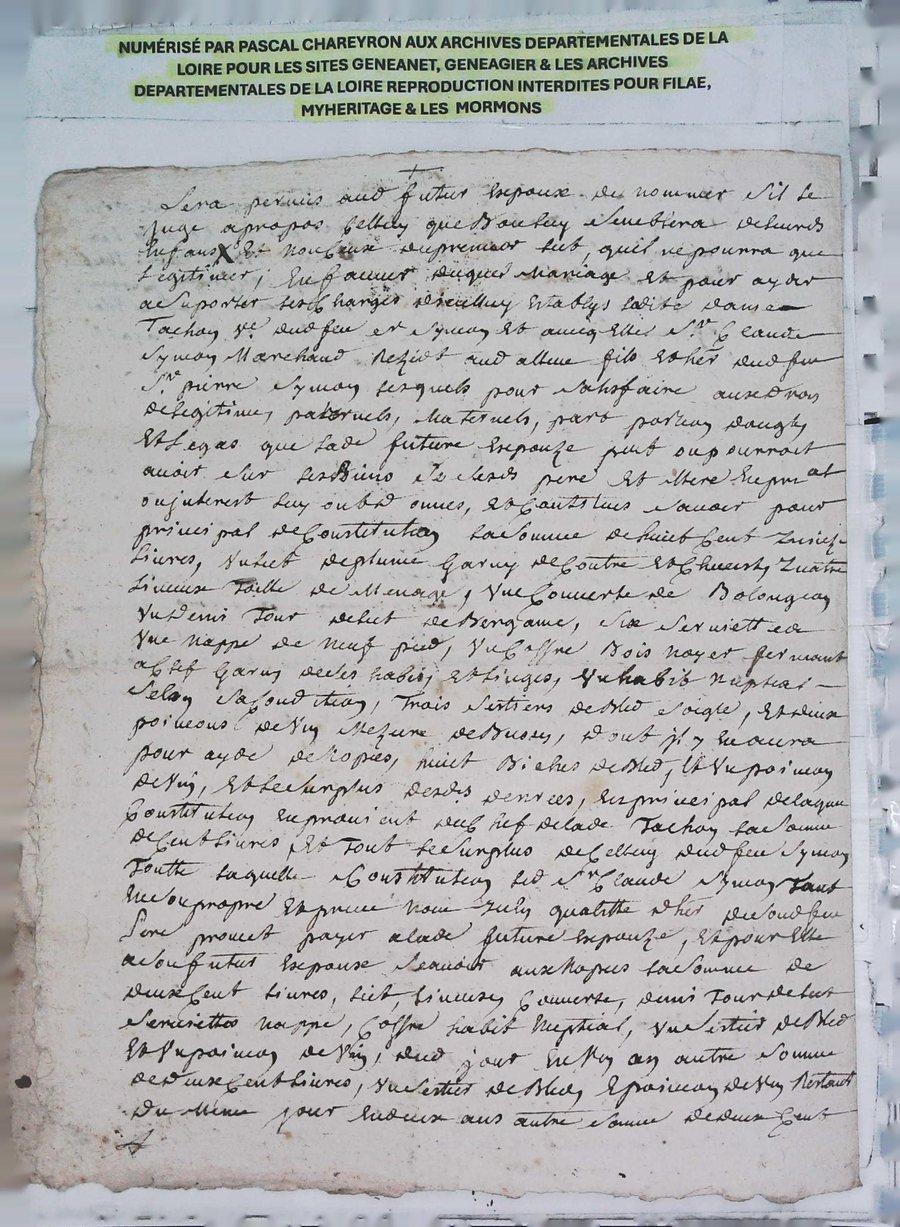 NUMÉRISÉ PAR PASCAL CHAREYRON AUX ARCHIVES DEPARTEMENTALES DE LA
LOIRE POUR LES SITES GENEANET, GENEAGIER & LES ARCHIVES
DEPARTEMENTALES DE LA LOIRE REPRODUCTION INTERDITES POUR FILAE,
MYHERITAGE & LES MORMONS
Sera permis aud futur Expoux de nommer sil le
juge apropos Celluy que Bon luy Semblera desurds
Enfans Et non Ceux du premier Lict, quil ne pourra que
Legitimer, En faveur duquel Mariage Et pour ayder
a Suporter les Charges dicelluy Establys ladite dame
Tachon Ve dud feu sr Symon Et avecq Elle Sr Claude
Symon Marchand Rezidt aud allieu fils Et her dud feu
Sr pierre Symon lesquels pour Satisfaire aux drois
de Legitime, paternels, Maternels, part portion daugts
Et Legas que lade future Expouze peut ou pourroit
avoir Sur les Biens de sesds pere Et Mere
ou jnterest luy ont donnes, Et Constitues Savoir pour
principal de Constitution la Somme de huict Cent
Livres, Un Lict de plume Garny de Coutre Et Chevest, Quattre
Linceux Toille de Menage, Une Couverte de
Un demi Tour de Lict de Bergame, Six Serviettes
Une Nappe de Neuf pied, Un Coffre Bois Noyer fermant
a Clef Garny de Ses habits, Et Linges, Un habit Nuptial
Selon Sa Condition, Trois Sestiers de Bled Seigle, Et deux
poincons de Vin Mezure de Bussy, dont jl y En aura
pour ayde de Nopces, huict Biches de Bled, Et Un poincon
de Vin, Et Le Surplus desds denrees, En principal de laque
Constitution En provient du Chef de lade Tachon la Somme
de Cent Livres Et Tout Le Surplus de Celluy dud feu Symon
Toutte laquelle Constitution led Sr Claude Symon Tant
En Son propre Et prive Nom qualitte dher de Son feu
Pere promet payer a lade future Expouze, Et pour Elle
a Son futur Expoux Scavoir aux Nopces la Somme de
deux Cent Livres, Lict, Linceux, Couverte, demi Tour de Lict
Serviettes Nappe, Coffre habit Nuptial, Un Sestier de Bled
Et Un poincon de Vin, dud jour En Un an autre Somme
de deux Cent Livres, Un Sestier de Bled, Et poincon de Vin Restant
Du Meme jour En deux ans autre Somme de deux Cent